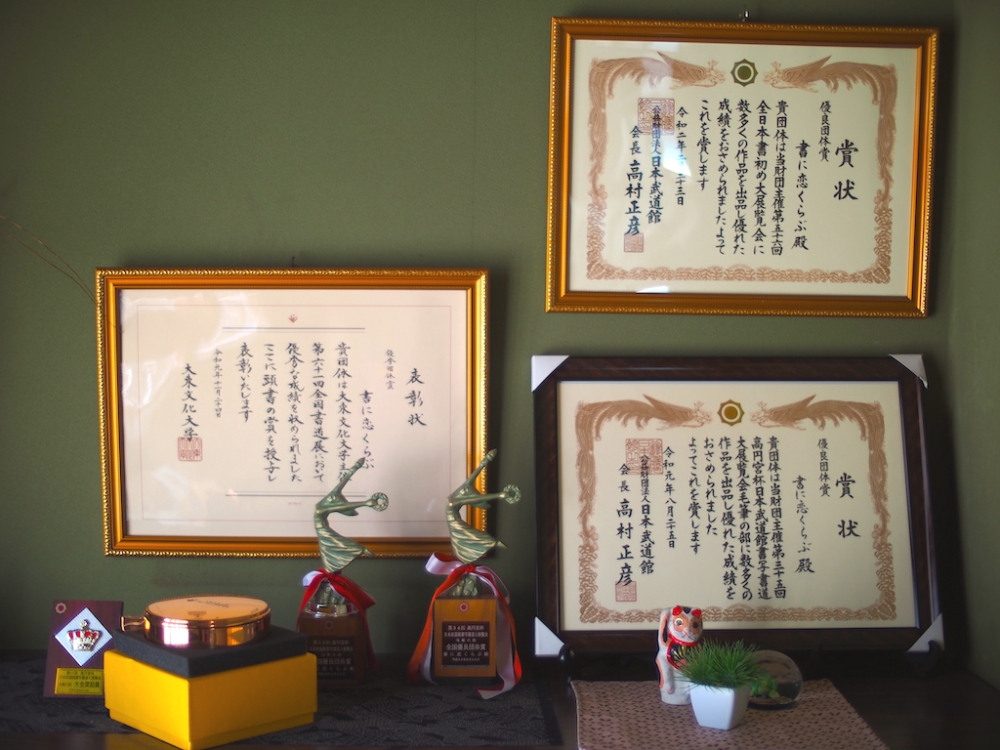 表彰状
優秀団体賞
書に恋くらぶ
貴団体は大東文化大学主催
第六十一回全国書道展において
優秀な成績を収められました
ここに頭書の賞を授与し
表彰いたします
令和元年十一月二十四日
大東文化大学
賞状
優良団体賞
書に恋くらぶ殿
貴団体は当財団主催第五十六回
全日本書初め大展覧会に
数多くの作品を出品し優れた
成績をおさめられましたよって
これを賞します
令和二年二月二十三日
公益財団法人日本武道館
会長 高村正彦
賞状
優良団体賞
書に恋くらぶ殿
貴団体は当財団主催第三十五回
高円宮杯日本武道館書写書道
大展覧会毛筆の部に数多くの
作品を出品し優れた成績を
おさめられました
よってこれを賞します
令和元年八月二十五日
公益財団法人日本武道館
会長 高村正彦
全国優良団体賞